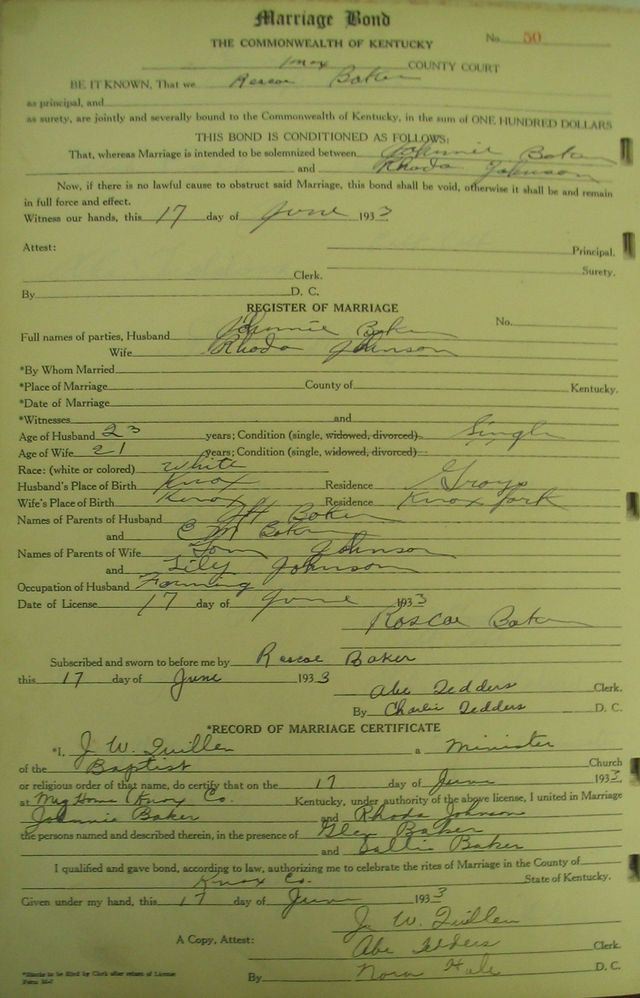 Marriage Bond
THE COMMONWEALTH OF KENTUCKY No. 50
Knox COUNTY COURT
BE IT KNOWN, That we Roscoe Baker
as principal, and
as surety, are jointly and severally bound to the Commonwealth of Kentucky, in the sum of ONE HUNDRED DOLLARS
THIS BOND IS CONDITIONED AS FOLLOWS:
That, whereas Marriage is intended to be solemnized between Johnnie Baker
and Rhoda Johnson
Now, if there is no lawful cause to obstruct said Marriage, this bond shall be void, otherwise it shall be and remain
in full force and effect.
Witness our hands, this 17 day of June 1933
Attest: Principal.
Clerk. Surety.
By D. C.
REGISTER OF MARRIAGE
No.
Full names of parties, Husband Johnnie Baker
Wife Rhoda Johnson
*By Whom Married
*Place of Marriage County of Kentucky.
*Date of Marriage
*Witnesses and
Age of Husband 23 years; Condition (single, widowed, divorced) Single
Age of Wife 21 years; Condition (single, widowed, divorced)
Race: (white or colored) white
Husband's Place of Birth Knox Residence Grays
Wife's Place of Birth Knox Residence Knox Fork
Names of Parents of Husband Baker
and C M Baker
Names of Parents of Wife Tom Johnson
and Lily Johnson
Occupation of Husband Farming
Date of License 17 day of June 1933
Roscoe Baker
Subscribed and sworn to before me by Roscoe Baker
this 17 day of June 1933
Abe Tedders Clerk.
By Charlie Tedders D. C.
*RECORD OF MARRIAGE CERTIFICATE
*I, J. W. Quillen a Minister
of the Baptist Church
or religious order of that name, do certify that on the 17 day of June 1933
at My Home Knox Co. Kentucky, under authority of the above license, I united in Marriage
Johnnie Baker and Rhoda Johnson
the persons named and described therein, in the presence of Glen Baker
and Sallie Baker
I qualified and gave bond, according to law, authorizing me to celebrate the rites of Marriage in the County of
Knox Co. State of Kentucky.
Given under my hand, this 17 day of June 1933
J. W. Quillen
A Copy, Attest: Abe Tedders Clerk.
By Nora Hale D. C.
*Blanks to be filled by Clerk after return of License